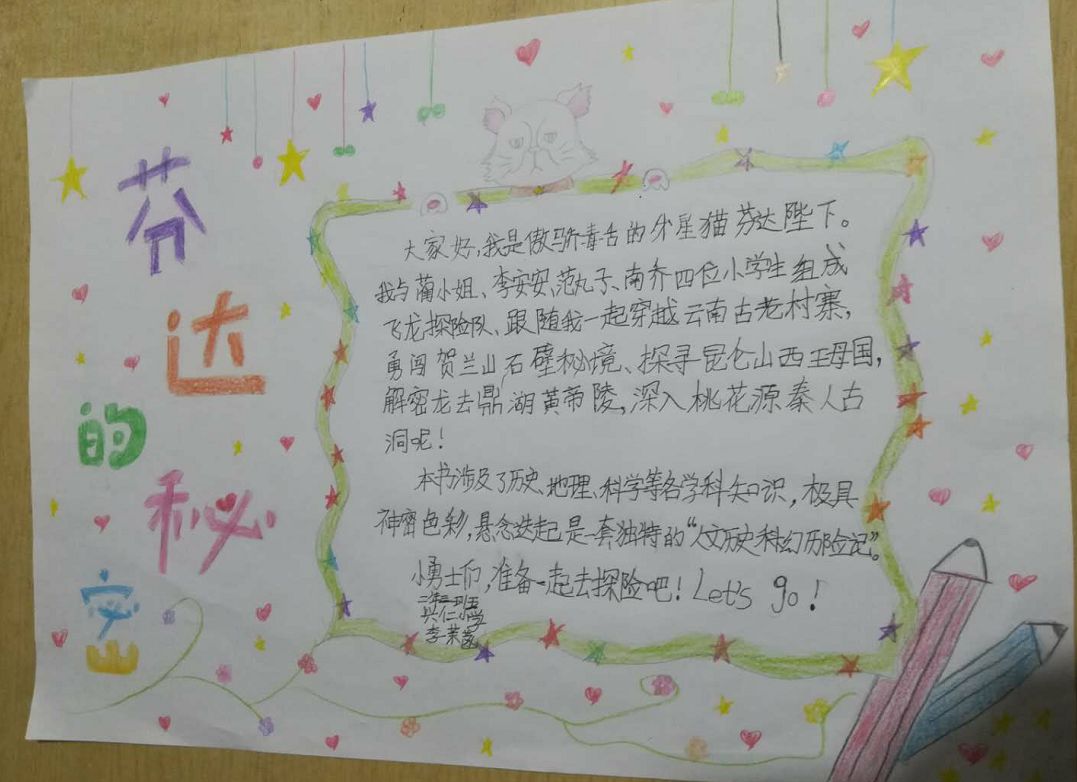 芬达的秘密
大家好,我是傲骄毒舌的外星猫芬达陛下。
我与蔺小姐、李安安、范丸子、南乔四位小学生组成
飞龙探险队、跟随我一起穿越云南古老村寨,
勇闯贺兰山石壁秘境、探寻昆仑山西王母国,
解密龙去鼎湖黄帝陵,深入桃花源秦人古
洞呢!
本书涉及了历史、地理、科学等各学科知识,极具
神密色彩,悬念迭起,是一套独特的“人文历史科幻历险记”。
小勇士们,准备一起去探险吧!Let's go!
兴仁小学